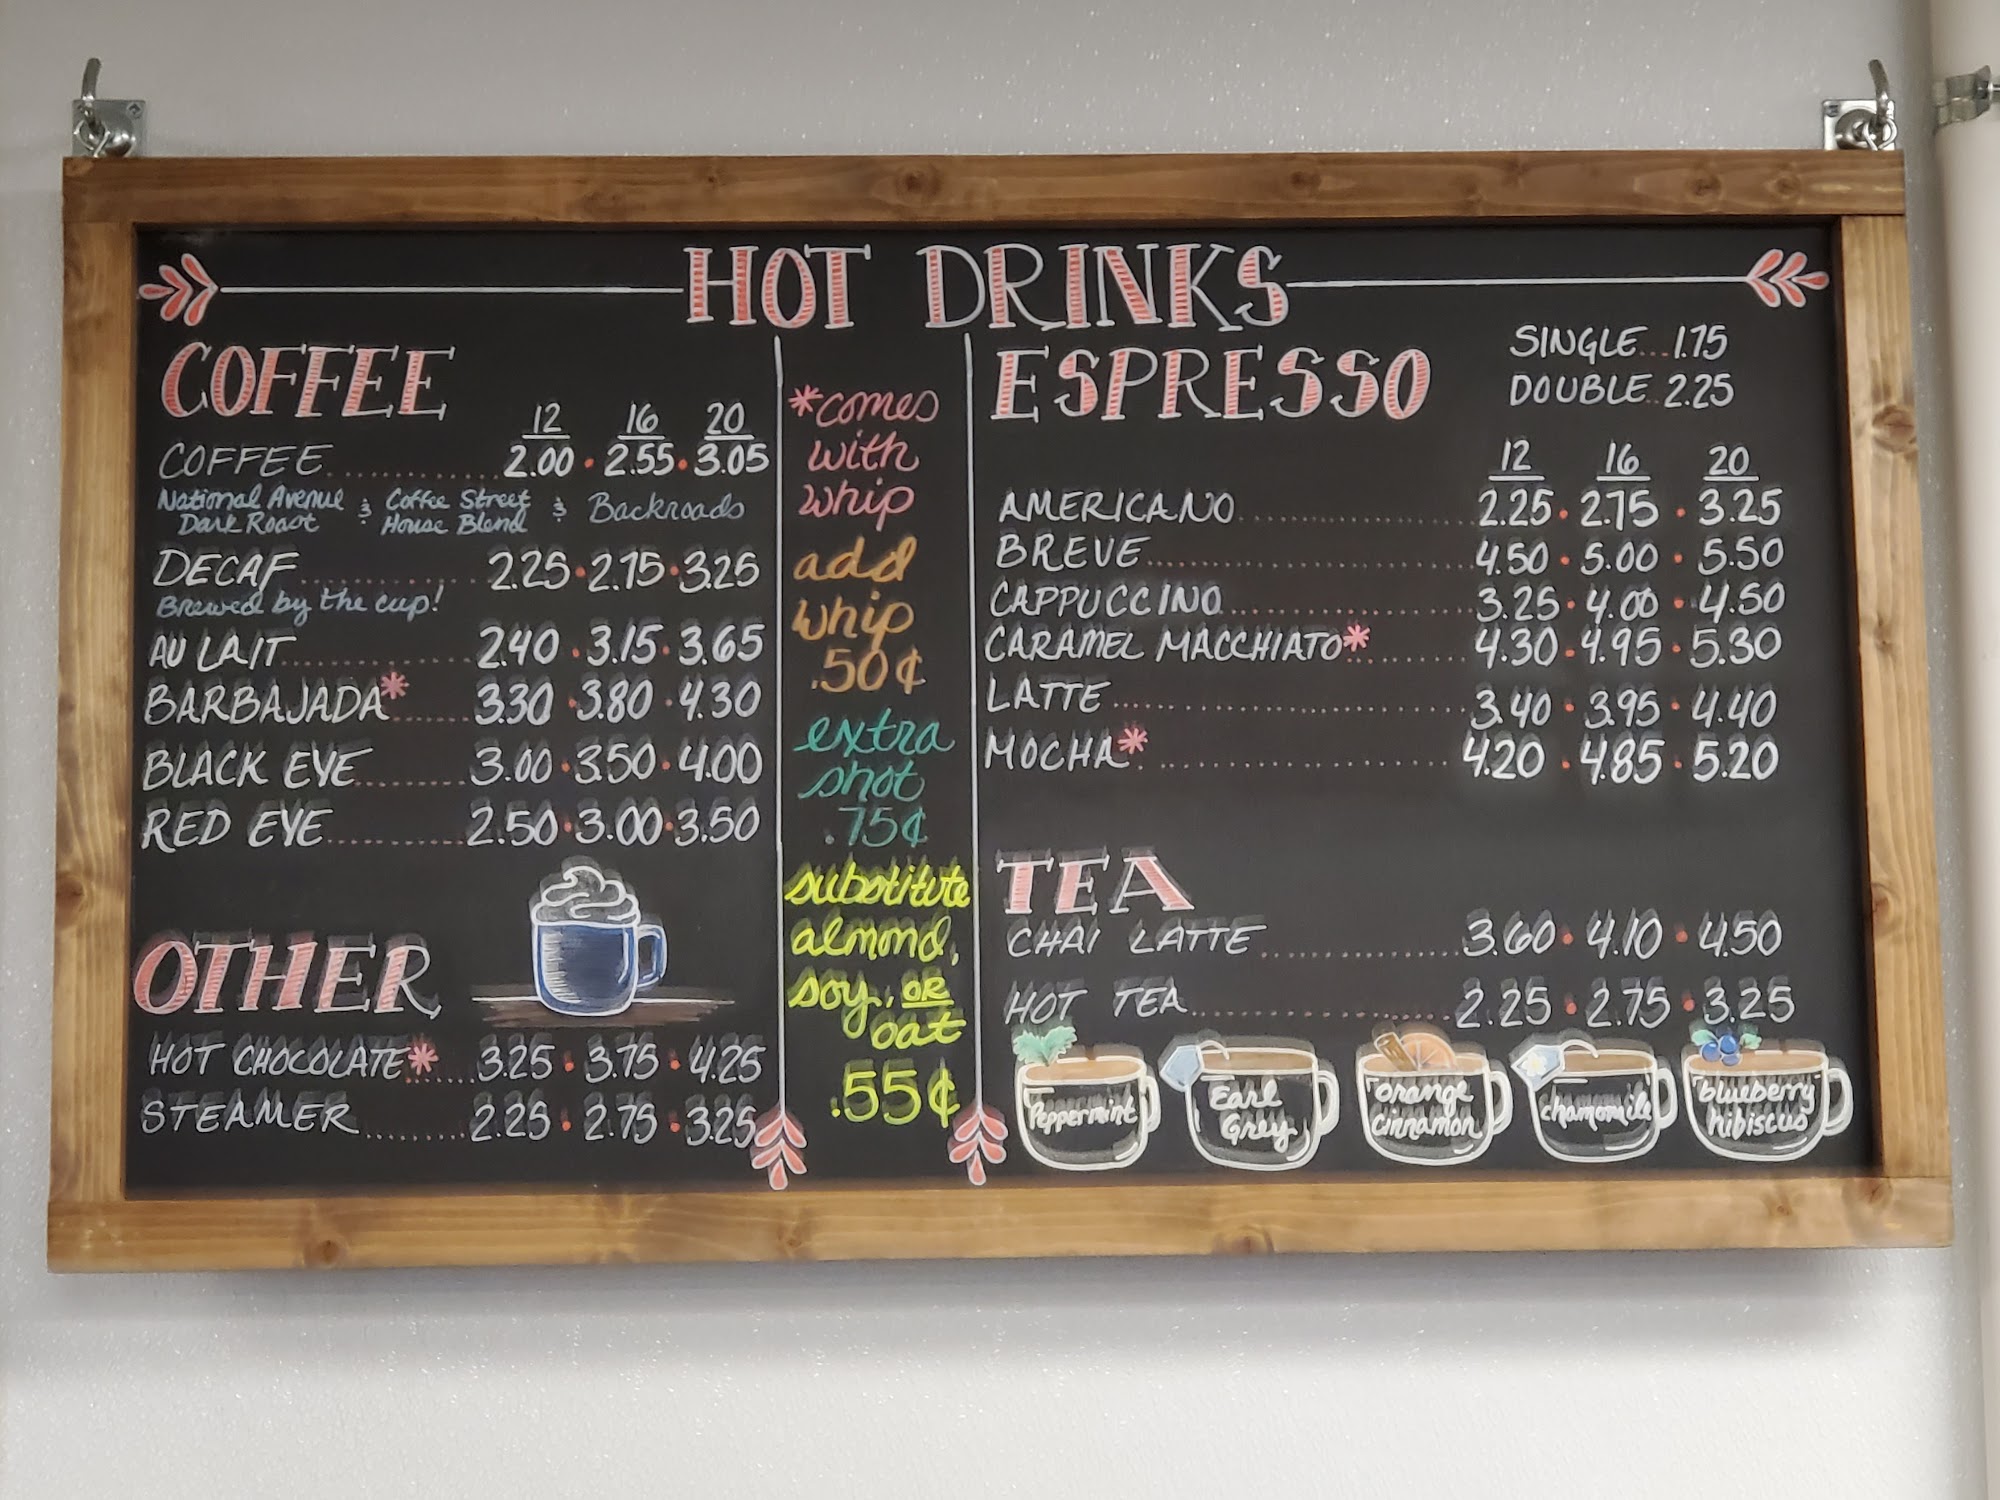 HOT DRINKS
COFFEE
12 16 20
COFFEE.............2.00 • 2.55 • 3.05
National Avenue Dark Roast & Coffee Street House Blend & Backroads
DECAF..............2.25 • 2.75 • 3.25
Brewed by the cup!
AU LAIT..............2.40 • 3.15 • 3.65
BARBAJADA*.......3.30 • 3.80 • 4.30
BLACK EYE.........3.00 • 3.50 • 4.00
RED EYE............2.50 • 3.00 • 3.50
OTHER
HOT CHOCOLATE*.....3.25 • 3.75 • 4.25
STEAMER.........2.25 • 2.75 • 3.25
*comes
with
whip
add
whip
.50¢
extra
shot
.75¢
substitute
almond,
soy, OR
oat
.55¢
ESPRESSO
SINGLE...1.75
DOUBLE..2.25
12 16 20
AMERICANO..................2.25 • 2.75 • 3.25
BREVE........................4.50 • 5.00 • 5.50
CAPPUCCINO..................3.25 • 4.00 • 4.50
CARAMEL MACCHIATO*.........4.30 • 4.95 • 5.30
LATTE........................3.40 • 3.95 • 4.40
MOCHA*......................4.20 • 4.85 • 5.20
TEA
CHAI LATTE..................3.60 • 4.10 • 4.50
HOT TEA.....................2.25 • 2.75 • 3.25
Peppermint
Earl
Grey
orange
cinnamon
chamomile
blueberry
hibiscus